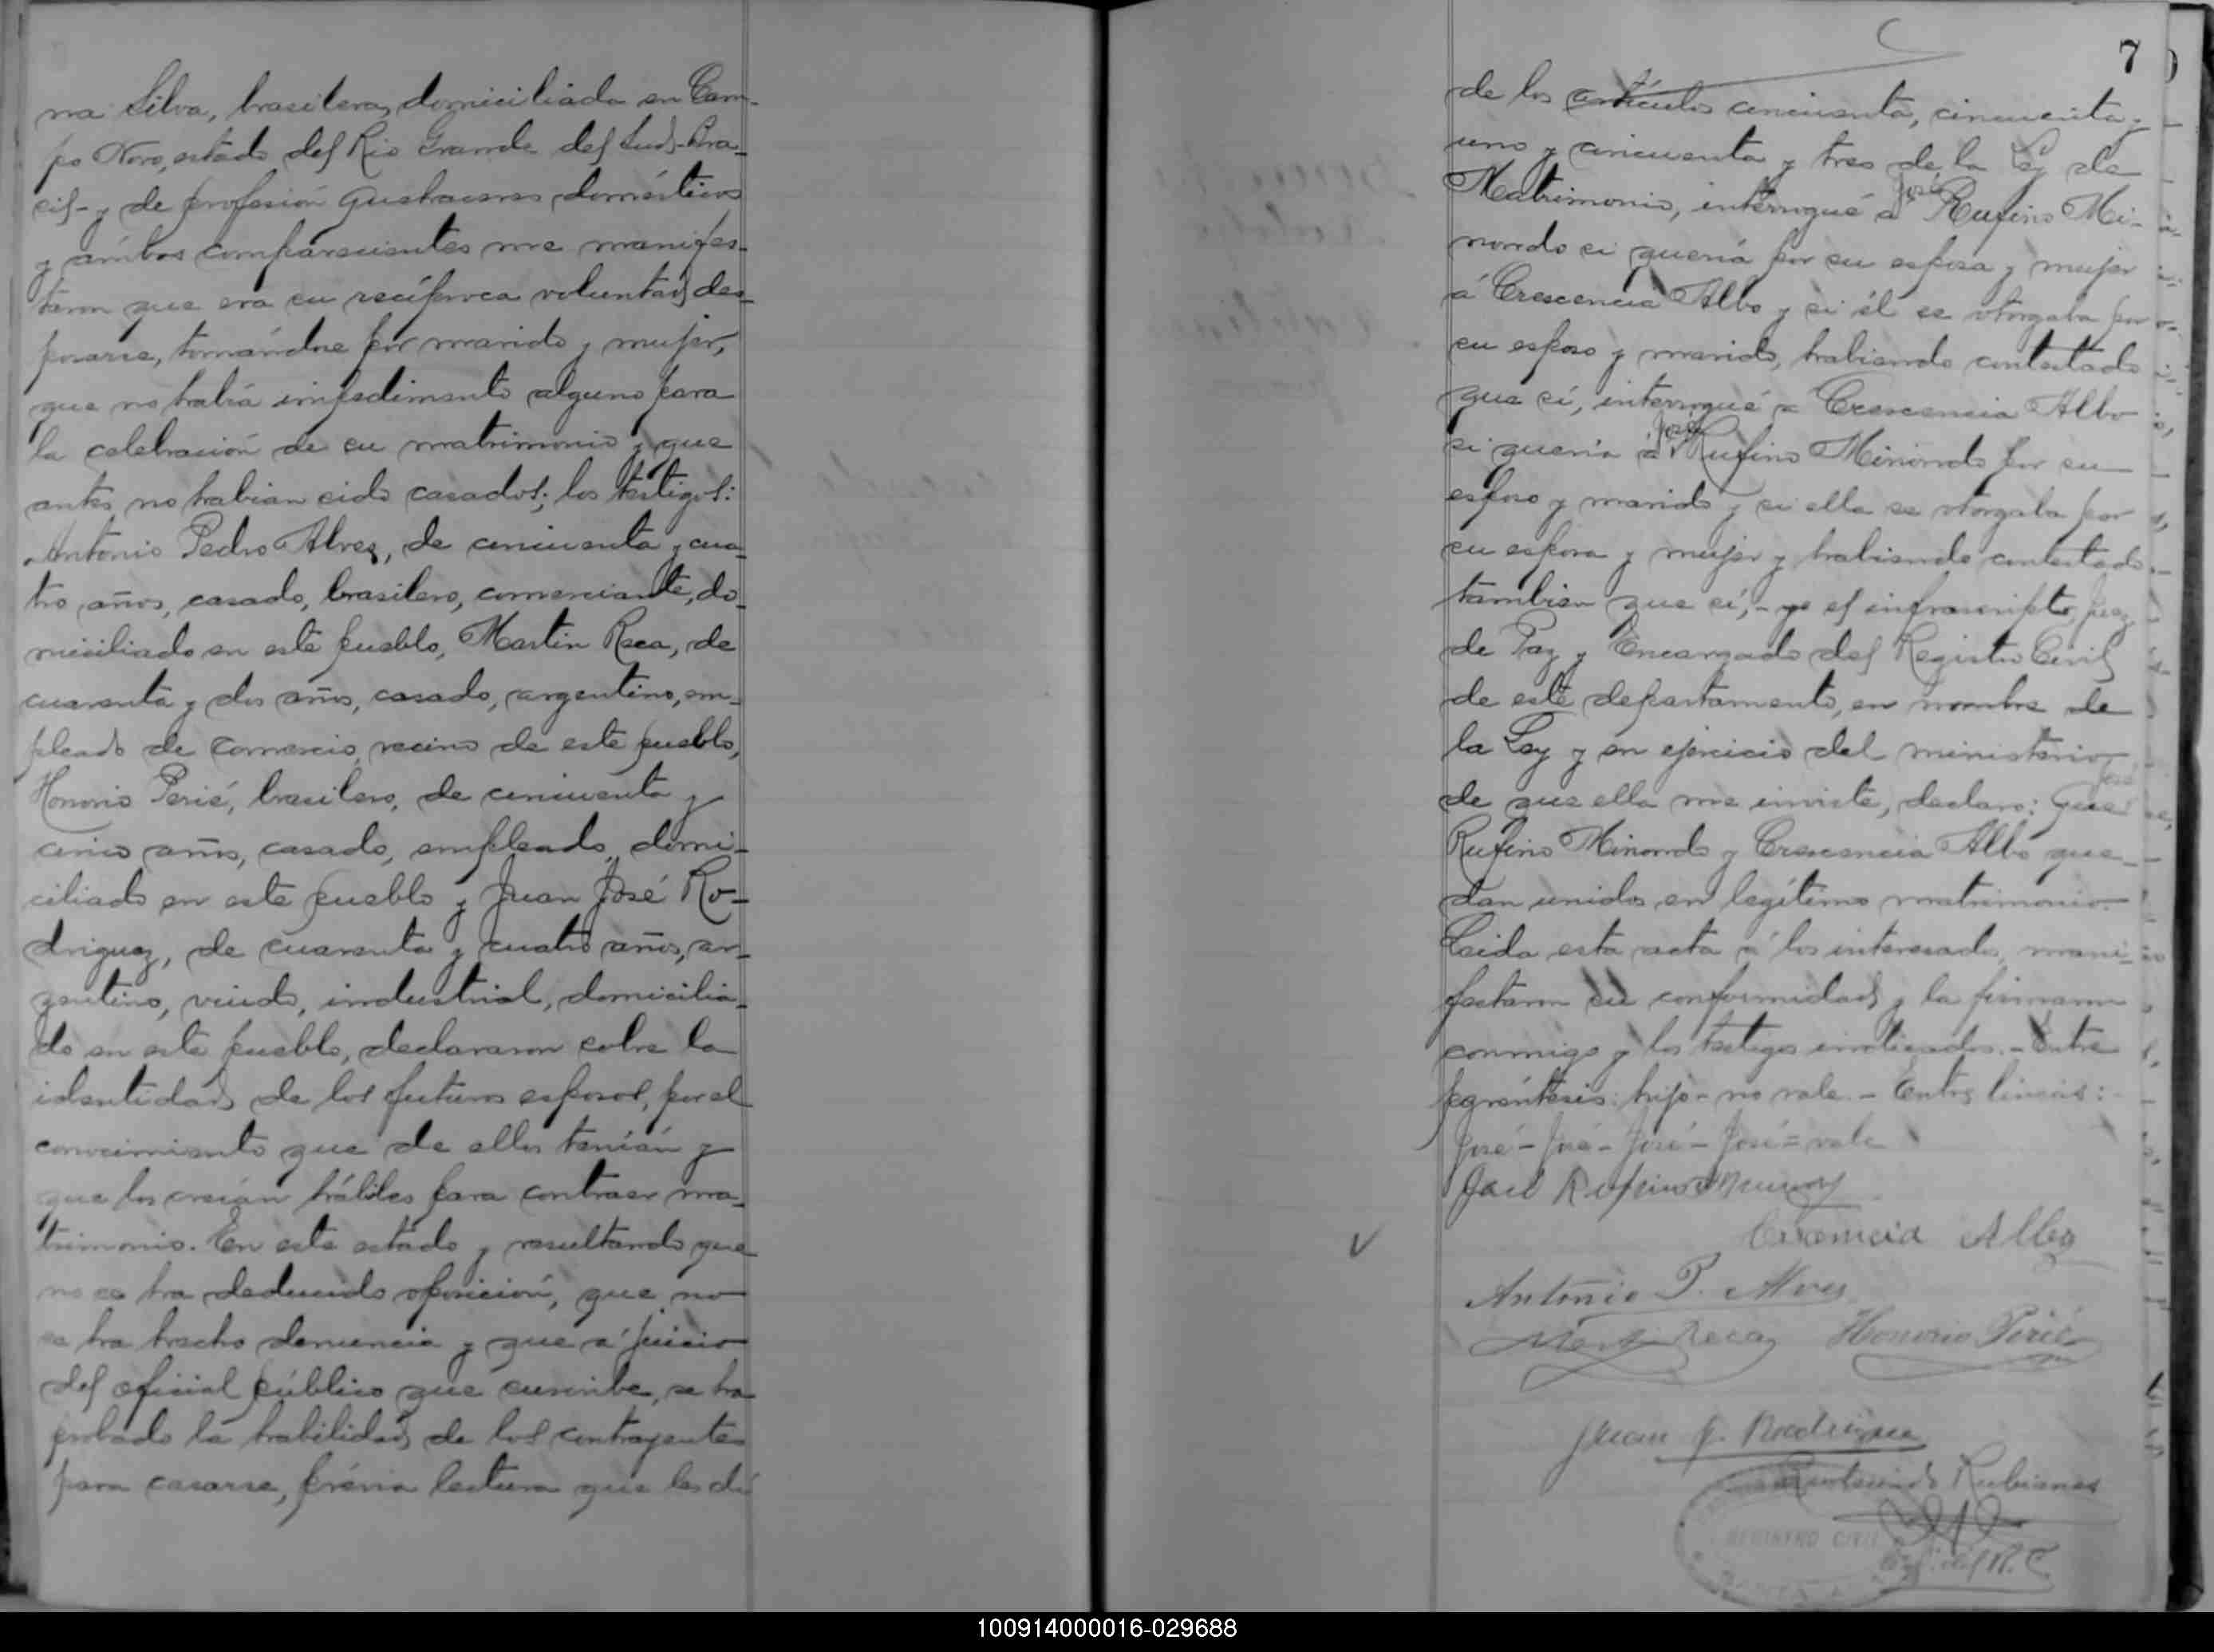 na Silva, brasilera, domiciliada en Cam-
po Novo, estado del Rio Grande del Sud-Bra-
sil- y de profesión quehaceres domésticos
y ámbos comparecientes me manifes-
taron que era su recíproca voluntad des-
posarse, tomándose por marido y mujer,
que no había impedimento alguno para
la celebración de su matrimonio y que
antes no habian sido casados; los testigos:
Antonio Pedro Alves, de cincuenta y cua-
tro años, casado, brasilero, comerciante, do-
miciliado en este pueblo, Martin Reca, de
cuarenta y dos años, casado, argentino, em-
pleado de comercio, vecino de este pueblo,
Honorio Perié, brasilero, de cincuenta y
cinco años, casado, empleado, domi-
ciliado en este pueblo y Juan José Ro-
driguez, de cuarenta y cuatro años, ar-
gentino, viudo, industrial, domicilia-
do en este pueblo, declararon sobre la
identidad de los futuros esposos, por el
conocimiento que de ellos tenían y
que los creían hábiles para contraer ma-
trimonio. En este estado y resultando que
no se ha deducido oposición, que no
se ha hecho denuncia y que á juicio
del oficial público que suscribe, se ha
probado la habilidad de los contrayentes
para casarse, prévia lectura que les dí
7
de los artículos cincuenta, cincuenta y
uno y cincuenta y tres de la Ley de
Matrimonio, interrogué á José Rufino Mi-
nondo si quería por su esposa y mujer
á Crescencia Albo y si él se otorgaba por
su esposo y marido, habiendo contestado
que sí, interrogué a Crescencia Albo
si quería á José Rufino Minondo por su
esposo y marido y si ella se otorgaba por
su esposa y mujer y habiendo contestado
tambien que sí,- yo el infrascripto, Juez
de Paz y Encargado del Registro Civil
de este departamento, en nombre de
la Ley y en ejercicio del ministerio
de que ella me inviste, declaro: Que José
Rufino Minondo y Crescencia Albo que-
dan unidos en legítimo matrimonio.
Leida esta acta á los interesados, mani-
festaron su conformidad y la firmaron
conmigo y los testigos indicados.- Entre
paréntesis: hijo - no vale.- Entre lineas:
José - José - José - José = vale
José Rufino Minondo
Crescencia Albo
Antonio P. Alves
Martin Reca Honorio Perié
Juan J. Rodriguez
Rubianes
REGISTRO CIVIL